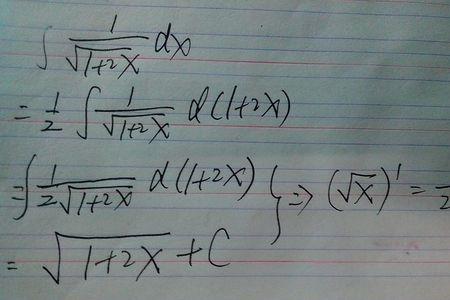 ∫ 1/√(1+2x) dx
= 1/2 ∫ 1/√(1+2x) d(1+2x)
= ∫ 1/(2√(1+2x)) d(1+2x) } ⇒ (√x)' =
= √(1+2x) + C